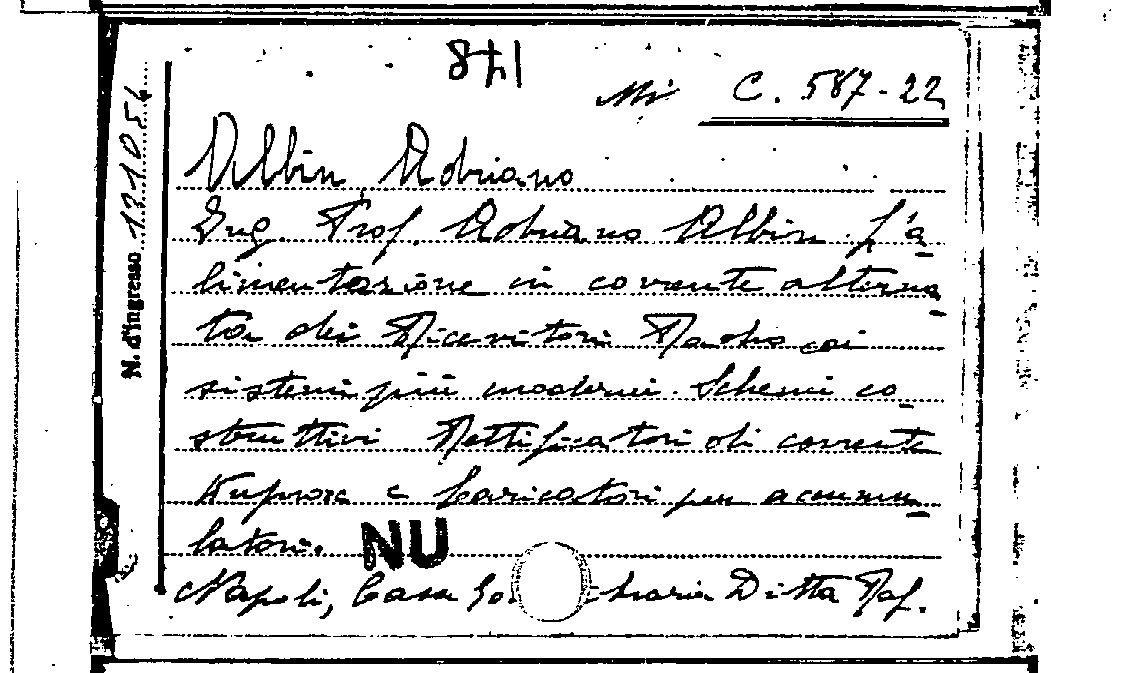 148
Mi C. 587-22
Albin Adriano
Ing. Prof. Adriano Albin. L'a_
limentazione in corrente alterna_
ta dei Ricevitori Radio coi
sistemi più moderni. Schemi co_
struttivi Rettificatori di corrente
Kuprox e Caricatori per accumu_
latori. NU
Napoli, Casa Ditta Raf.
N. d'ingresso 131051